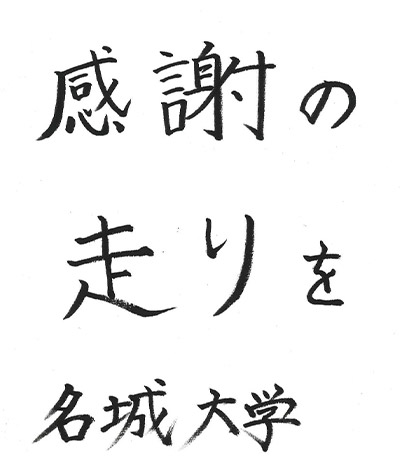 感謝の
走りを
名城大学